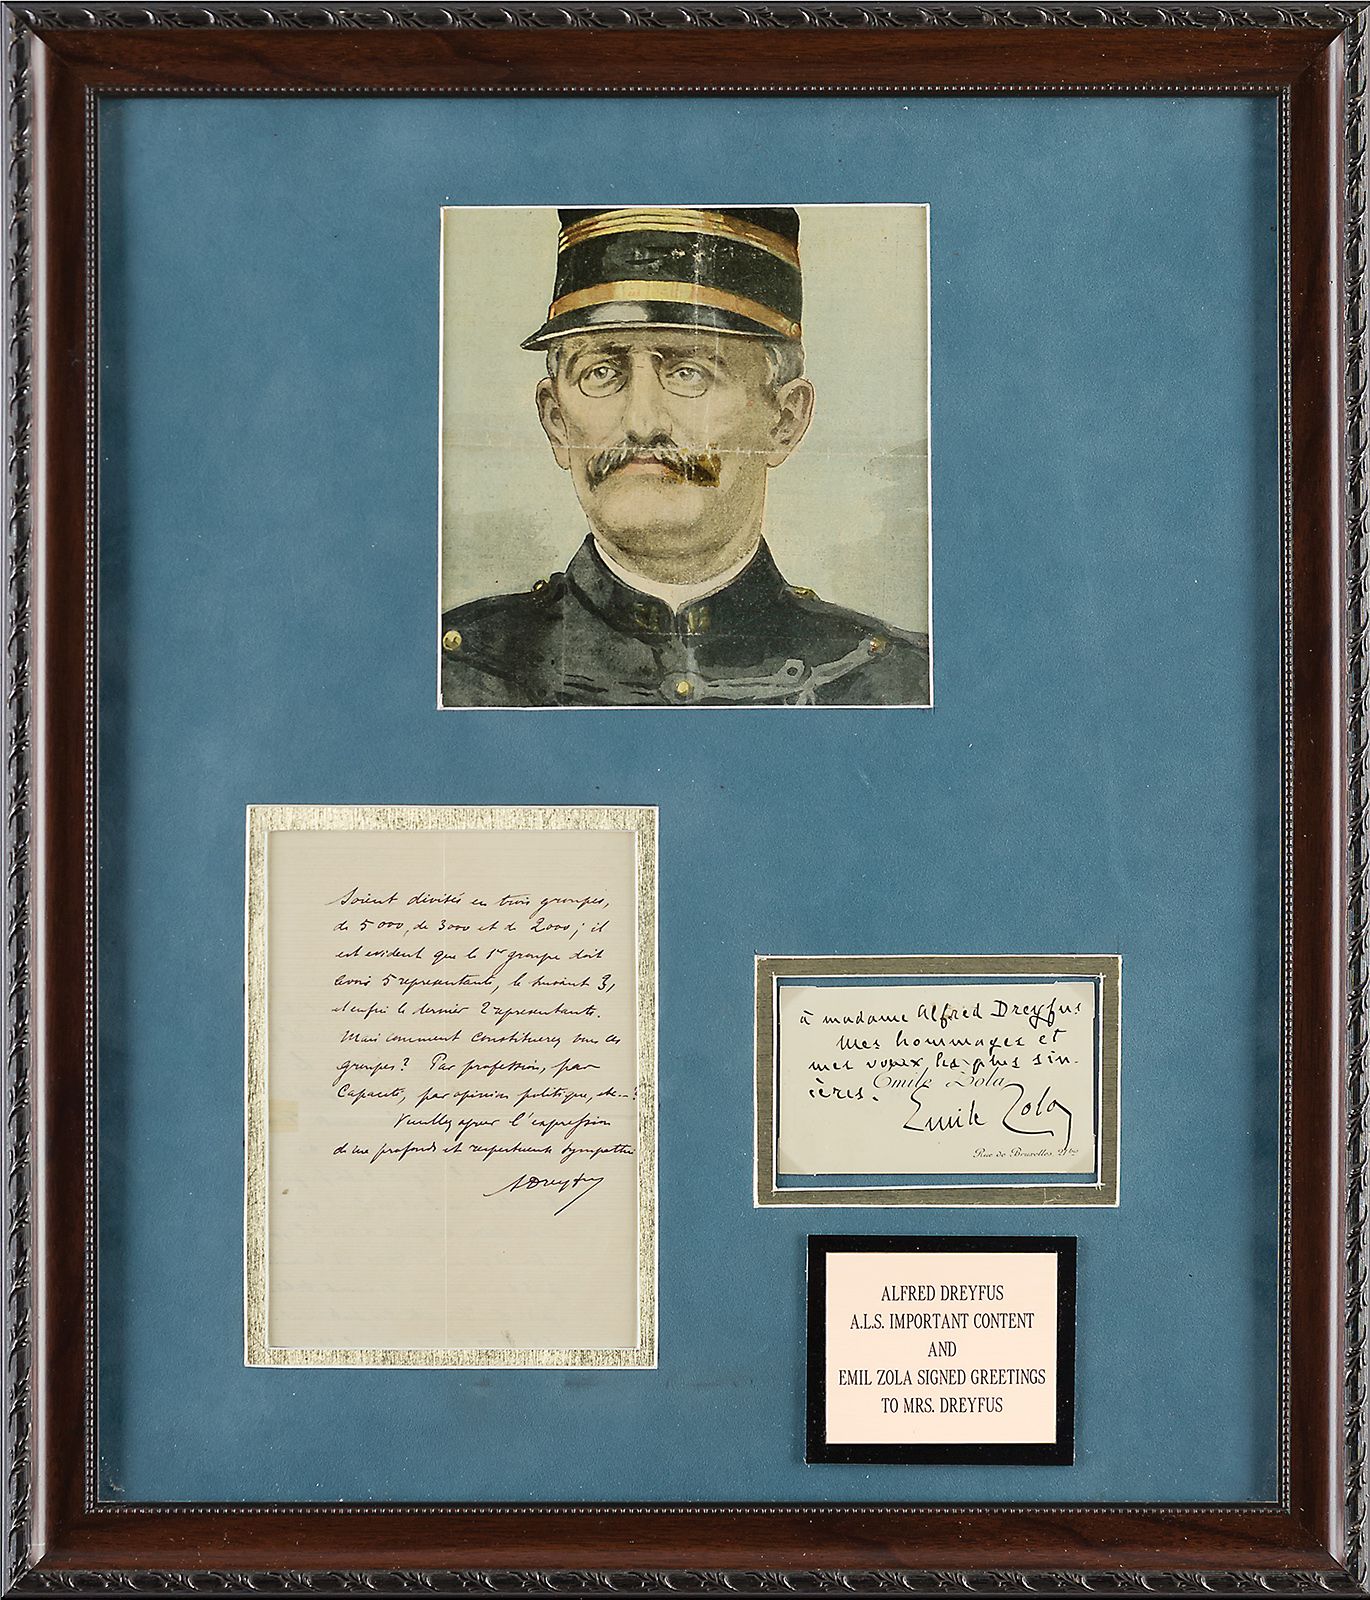 Soient divisés en trois groupes,
de 5000, de 3000 et de 2000; il
est evident que le 1er groupe doit
avoir 5 representants, le suivant 3,
et enfin le dernier 2 representants.
Mais comment constituerez vous ces
groupes? Par profession, par
Capacité, par opinion politique, etc--?
Veuillez agreer l'expression
de ma profonde et respectueuse sympathie
ADreyfus
à madame Alfred Dreyfus
mes hommages et
mes voeux les plus sin-
ères.
Emile Zola
Emile Zola
Rue de Bruxelles 21bis
ALFRED DREYFUS
A.L.S. IMPORTANT CONTENT
AND
EMIL ZOLA SIGNED GREETINGS
TO MRS. DREYFUS